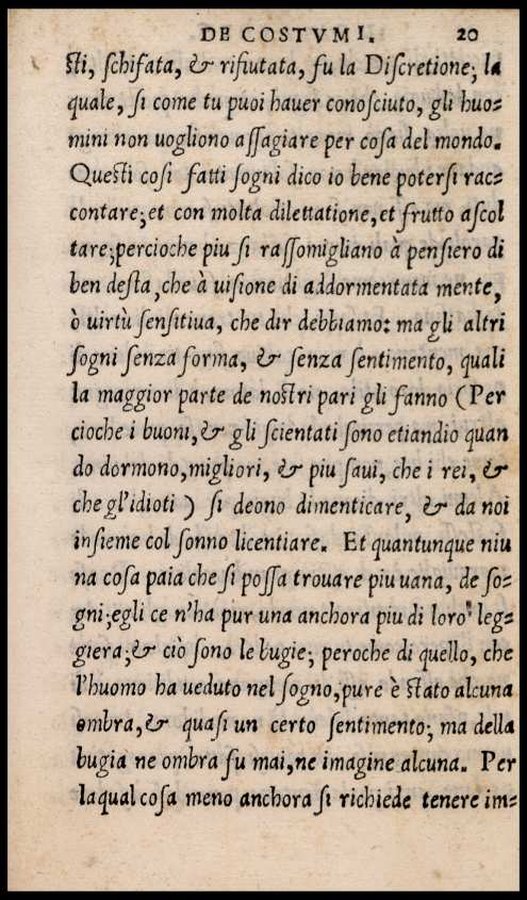 DE COSTVMI. 20
sti, schifata, & rifiutata, fu la Discretione; la
quale, si come tu puoi hauer conosciuto, gli huo=
mini non uogliono assagiare per cosa del mondo.
Questi cosi fatti sogni dico io bene potersi rac=
contare;et con molta dilettatione,et frutto ascol
tare;percioche piu si rassomigliano à pensiero di
ben desta,che à uisione di addormentata mente,
ò uirtù sensitiua, che dir debbiamo: ma gli altri
sogni senza forma, & senza sentimento, quali
la maggior parte de nostri pari gli fanno (Per
cioche i buoni,& gli scientati sono etiandio quan
do dormono,migliori, & piu saui, che i rei, &
che gl'idioti ) si deono dimenticare, & da noi
insieme col sonno licentiare. Et quantunque niu
na cosa paia che si possa trouare piu uana, de so=
gni;egli ce n'ha pur una anchora piu di loro leg=
giera;& ciò sono le bugie; peroche di quello, che
l'huomo ha ueduto nel sogno,pure è stato alcuna
ombra,& quasi un certo sentimento; ma della
bugia ne ombra fu mai,ne imagine alcuna. Per
laqual cosa meno anchora si richiede tenere im=